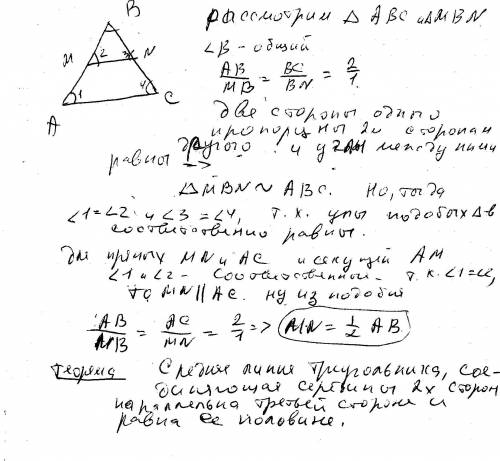 B
M 2 3 N
A 1 4 C
рассмотрим △ ABC и △MBN.
∠B - общий
AB/MB = BC/BN = 2/1
две стороны одного
пропорцны 2м сторонам
другого и углы между ними
равны =>
△MBN ~ ABC. Но, тогда
∠1=∠2 и ∠3=∠4, т.к. углы подобых △в
соответственно равны.
для прямых MN и AC и секущей AM
∠1 и ∠2 - соответственные. т.к. ∠1=∠2,
то MN || AC. ну из подобия
AB/MB = AC/MN = 2/1 => MN = 1/2 AB.
Теорема Средняя линия треугольника, сое-
диняющая середины 2х сторон
параллельна третьей стороне и
равна ее половине.